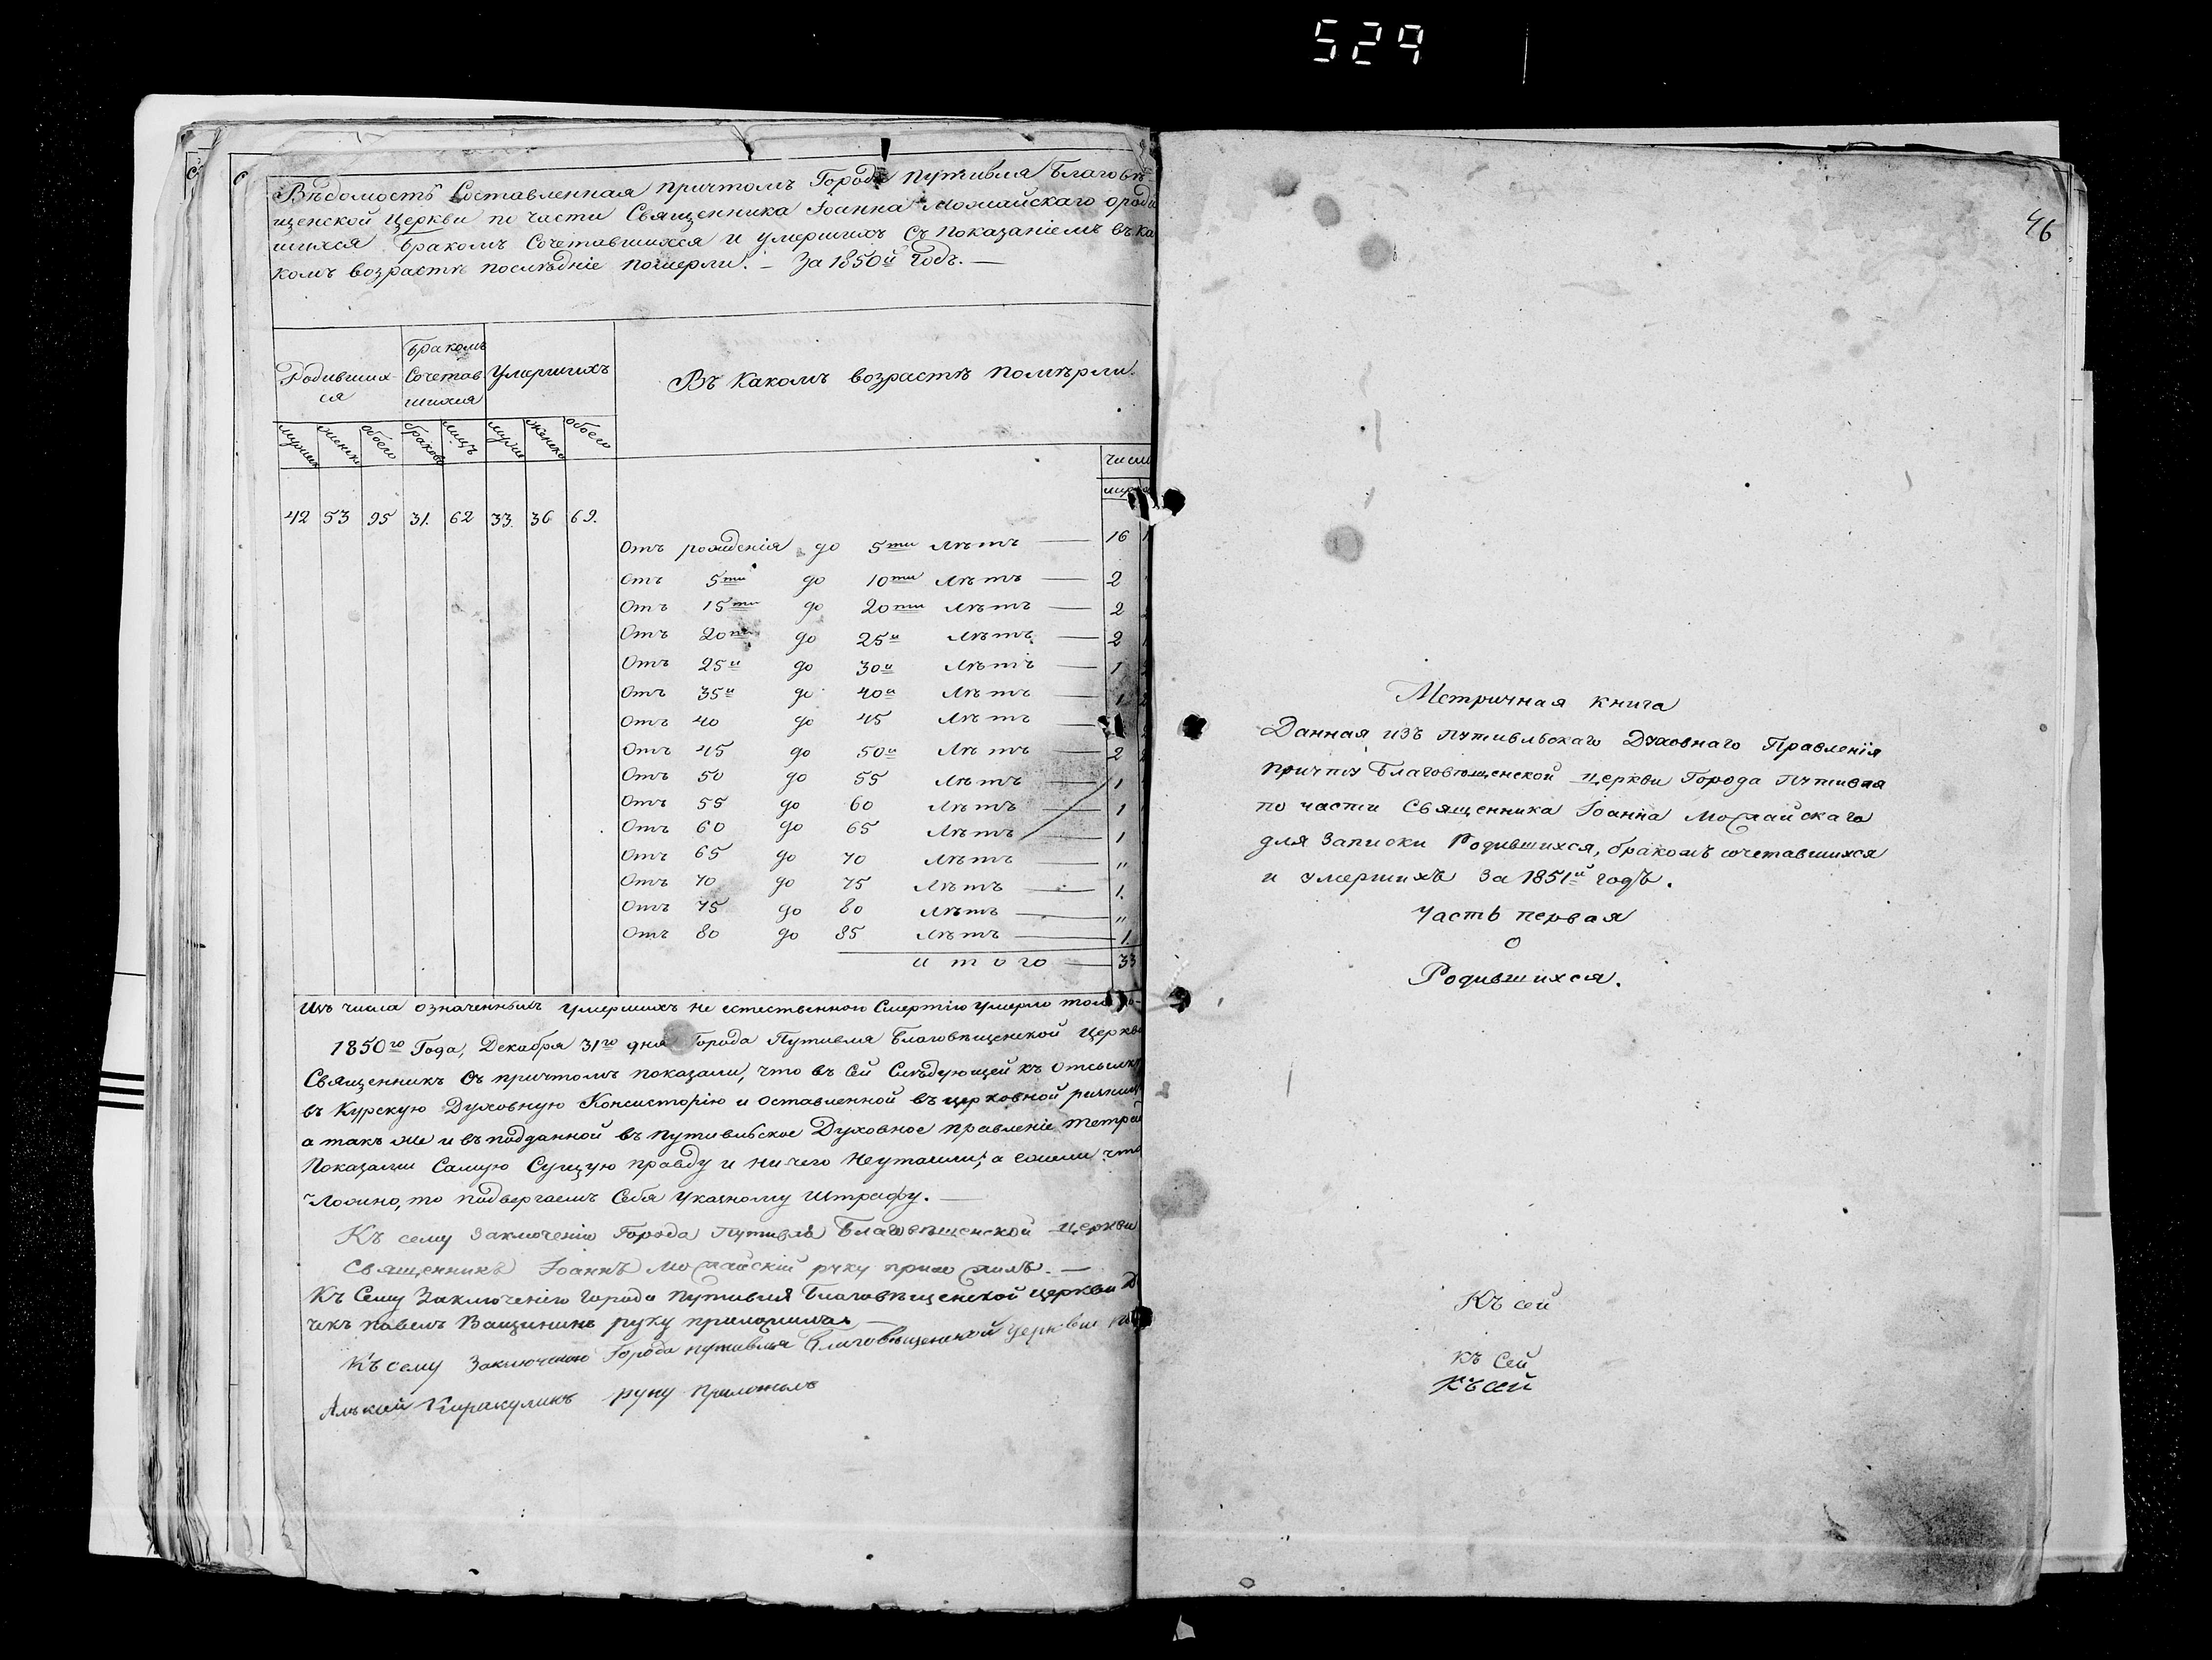 529
Вѣдомость Составленная причтомъ Города Путивля Благовѣ-
щенской Церкви по части Священника Іоанна Можайскаго о роди
шихся бракомъ Сочетавшихся и умершихъ Съ показаніемъ въ ка
комъ возрастѣ послѣдніе померли. — За 1850й Годъ. —
Родивших-
ся
Бракомъ
Сочетав
шихся
Умершихъ
Въ Какомъ возрастѣ помѣрли.
мужеск
женск
обоего
браковъ
лицъ
муже
женска
обоего
Числ
муж
42 53 95 31. 62 33. 36 69.
Отъ рожденія до 5ти лѣтъ — 16
Отъ 5ти до 10ти лѣтъ — 2
Отъ 15ти до 20ти лѣтъ — 2
Отъ 20ти до 25и лѣтъ — 2
Отъ 25и до 30и лѣтъ — 1
Отъ 35и до 40и лѣтъ — 1
Отъ 40 до 45 лѣтъ —
Отъ 45 до 50и лѣтъ — 2
Отъ 50 до 55 лѣтъ — 1
Отъ 55 до 60 лѣтъ — 1
Отъ 60 до 65 лѣтъ — 1
Отъ 65 до 70 лѣтъ — "
Отъ 70 до 75 лѣтъ — 1.
Отъ 75 до 80 лѣтъ — "
Отъ 80 до 85 лѣтъ — 1.
итого — 33
Изъ числа означенныхъ умершихъ не естественною Смертію умерло
1850го Года, Декабря 31го дня Города Путивля Благовѣщенской Церкви
Священникъ Съ причтомъ показали, что въ сей Слѣдующей къ отсылкѣ
въ Курскую Духовную Консисторію и оставленной въ церковной ризниц
а такъ же и въ подданной въ Путивльское Духовное правленіе тетра
Показали Самую Сущую правду и ни чего Неутаили; а ежели что
Ложно, то подвергаемъ Себя Указному Штрафу. —
Къ сему заключенію Города Путивля Благовѣщенской церкви
Священникъ Іоаннъ Можайскій руку приложилъ. —
Къ Сему Заключенію города Путивля Благовѣщенской церкви Д
чекъ Павелъ Ващининъ руку приложилъ —
Къ сему Заключенію Города Путивля Благовѣщенской Церкви
руку приложилъ
46
Метричная книга
Данная изъ Путивльскаго Духовнаго Правленія
причту Благовѣщенской церкви Города Путивля
по части Священника Іоанна Можайскаго
для записки Родившихся, бракомъ сочетавшихся
и умершихъ за 1851й годъ.
Часть первая
О
Родившихся.
Къ сей
Къ Сей
Къ сей